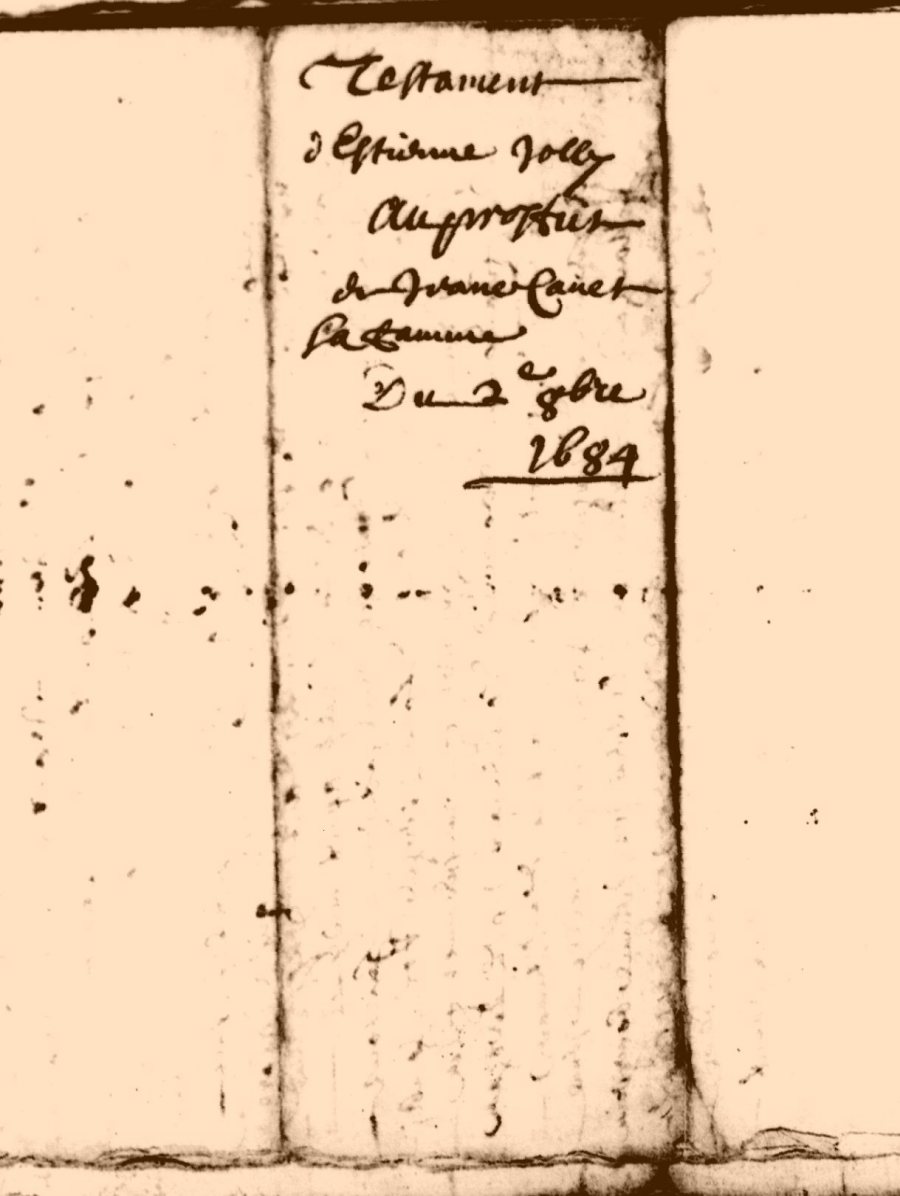 Testament
d'Estienne Jolly
Au proffit
de Jeanne Cauet
sa famme
Du 2e 8bre
1684